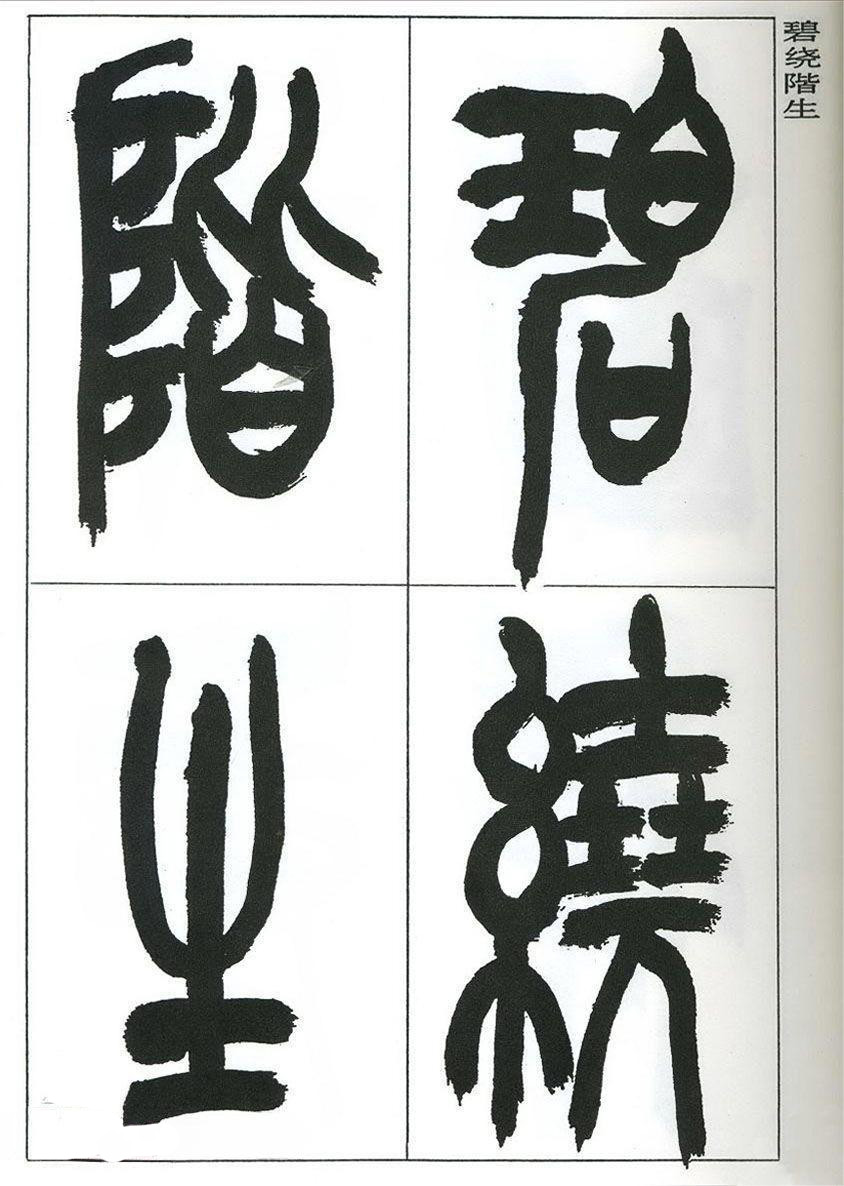 碧绕阶生
碧繞
階生